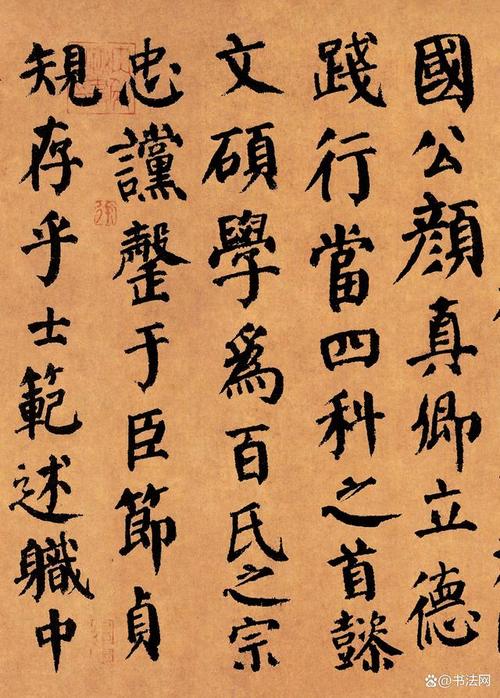 國公顔真卿立德
踐行當四科之首懿
文碩學爲百氏之宗
忠讜罄于臣節貞
規存乎士範述職中
书法网